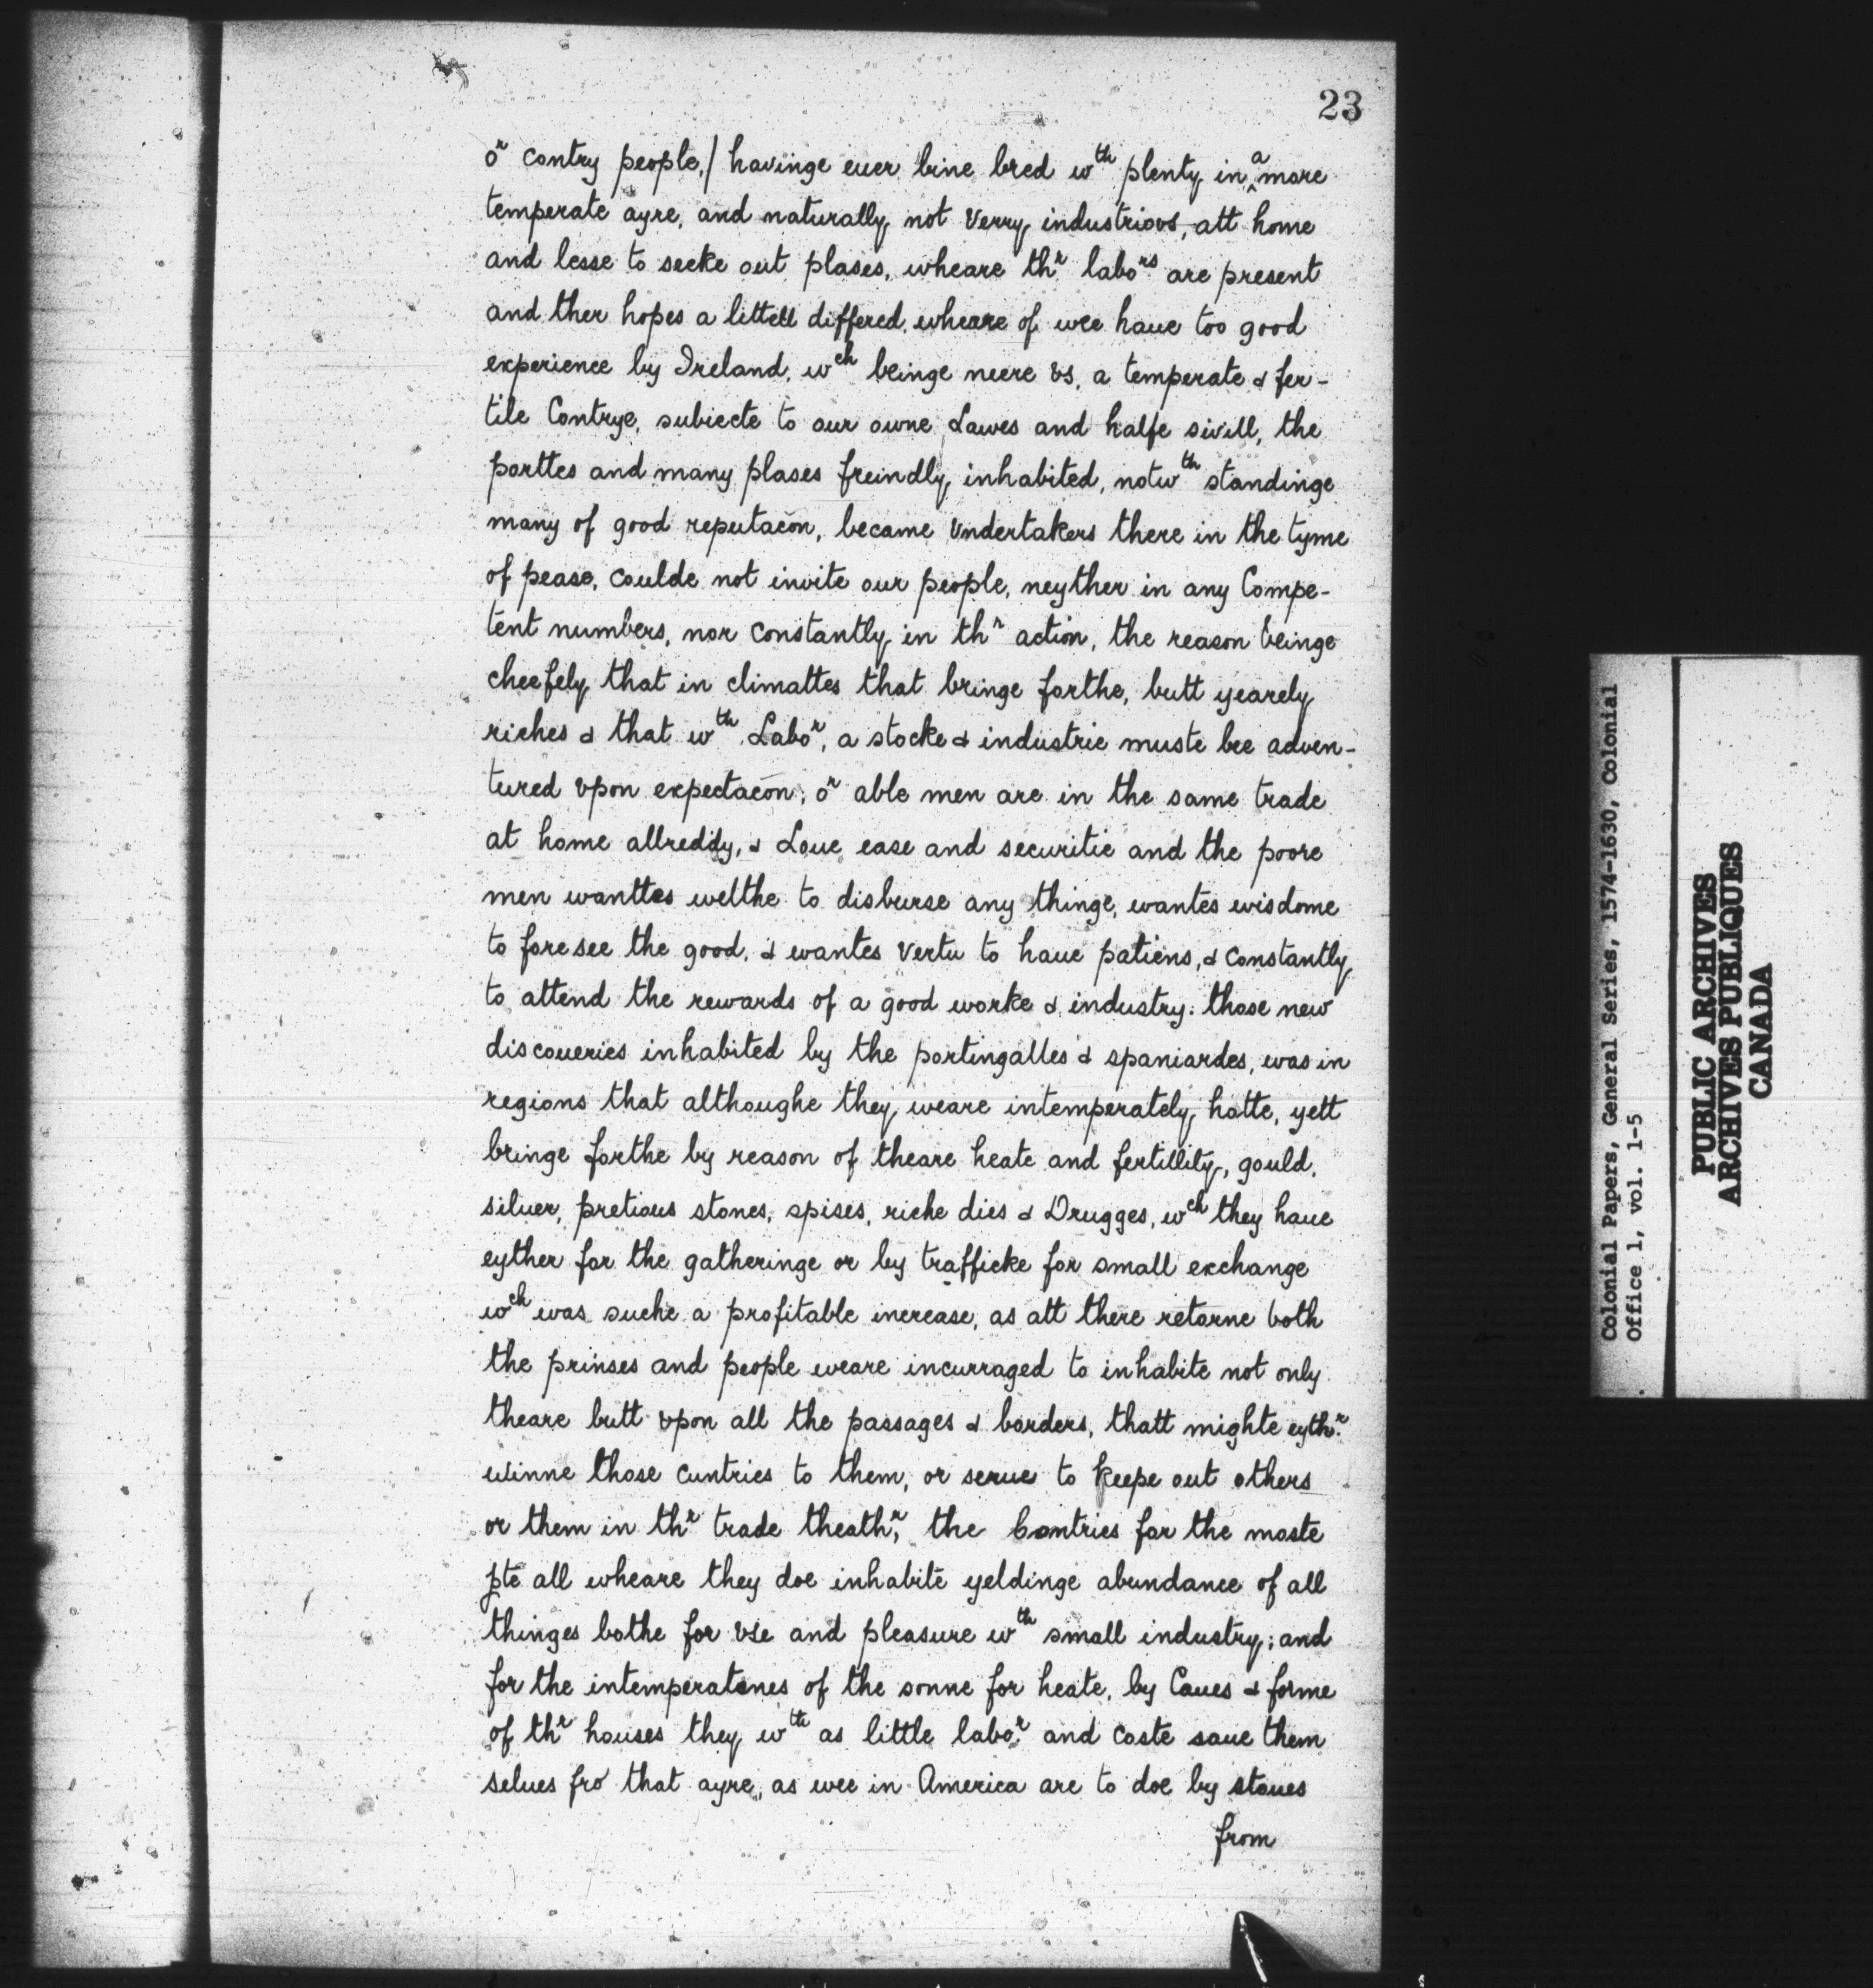 23
oʳ contry people,/ havinge euer bine bred wᵗʰ plenty in ^a more
temperate ayre, and naturally not Verry industrioos, att home
and lesse to seeke out plases, wheare thʳ laboʳˢ are present
and ther hopes a littell differed, wheare of wee haue too good
experience by Ireland, wᶜʰ beinge neere vs, a temperate & fer-
tile Contrye, subiecte to our owne Lawes and halfe sivill, the
porttes and many plases freindly inhabited, notwᵗʰ standinge
many of good reputacōn, became Vndertakers there in the tyme
of pease, coulde not invite our people, neyther in any Compe-
tent numbers, nor constantly in thʳ action, the reason beinge
cheefely that in climattes that bringe forthe, butt yearely
riches & that wᵗʰ Laboʳ, a stocke & industrie muste bee adven-
tured vpon expectacōn, oʳ able men are in the same trade
at home allreddy, & Loue ease and securitie and the poore
men wanttes welthe to disburse any thinge, wantes wisdome
to foresee the good, & wantes vertu to haue patiens, & constantly
to attend the rewards of a good worke & industry. those new
discoueries inhabited by the portingalles & spaniardes, was in
regions that althoughe they weare intemperately hotte, yett
bringe forthe by reason of theare heate and fertillity, gould,
siluer, pretious stones, spises, riche dies & Drugges, wᶜʰ they haue
eyther for the gatheringe or by trafficke for small exchange
wᶜʰ was suche a profitable increase, as att there retorne both
the prinses and people weare incurraged to inhabite not only
theare butt vpon all the passages & borders, thatt mighte eythʳ
winne those cuntries to them, or serue to keepe out others
or them in thʳ trade theathʳ, the Contries for the moste
pte all wheare they doe inhabite yeldinge abundance of all
thinges bothe for vse and pleasure wᵗʰ small industry; and
for the intemperatenes of the sonne for heate, by Caues & forme
of thʳ houses they wᵗʰ as little laboʳ and coste saue them
selues frō that ayre, as wee in America are to doe by stoues
from
Colonial Papers, General Series, 1574-1630, Colonial
Office 1, vol. 1-5
PUBLIC ARCHIVES
ARCHIVES PUBLIQUES
CANADA